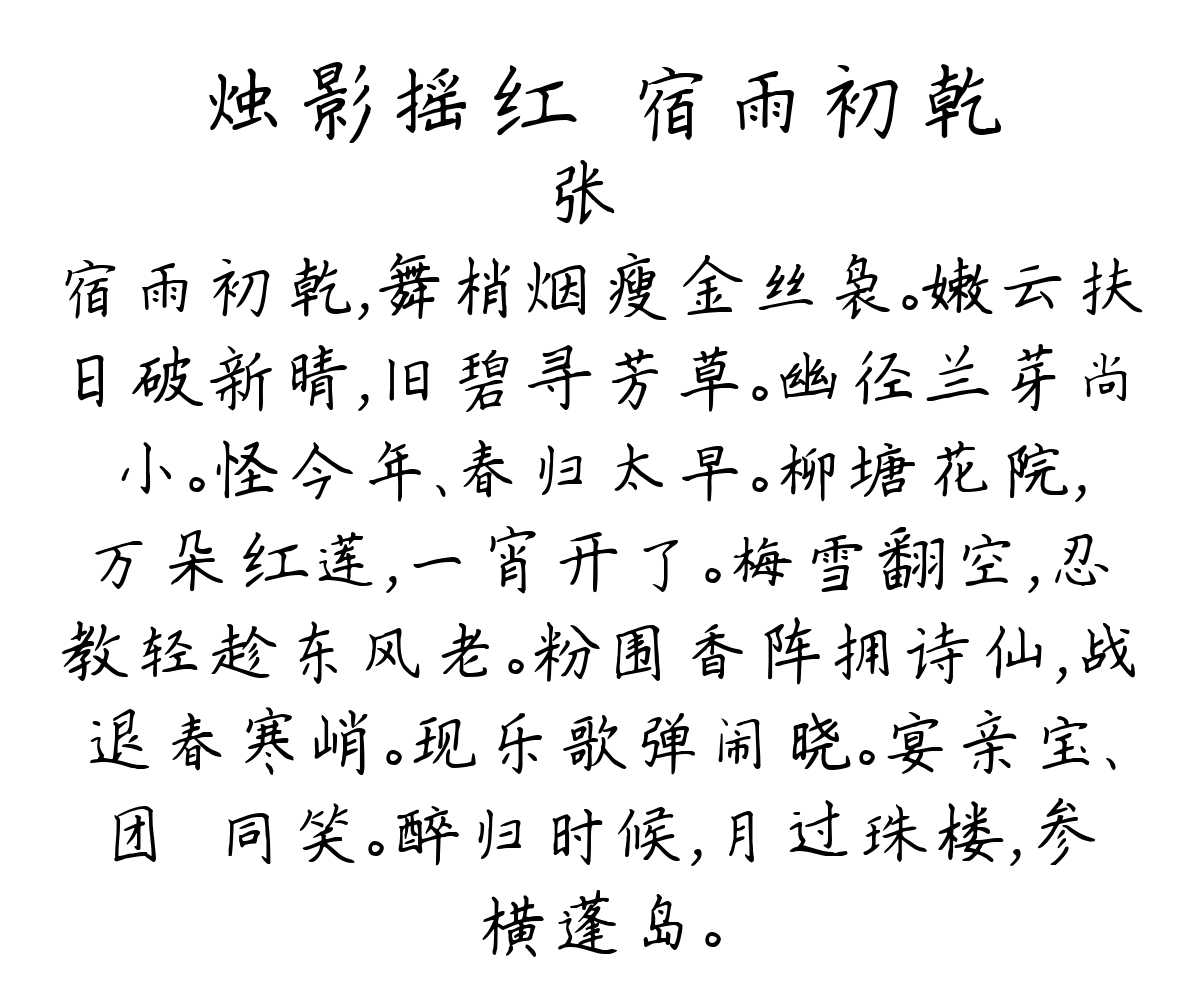 烛影摇红 宿雨初乾
张
宿雨初乾,舞梢烟瘦金丝袅。嫩云扶
日破新晴,旧碧寻芳草。幽径兰芽尚
小。怪今年、春归太早。柳塘花院,
万朵红莲,一宵开了。梅雪翻空,忍
教轻趁东风老。粉围香阵拥诗仙,战
退春寒峭。现乐歌弹闹晓。宴亲宝、
团 同笑。醉归时候,月过珠楼,参
横蓬岛。